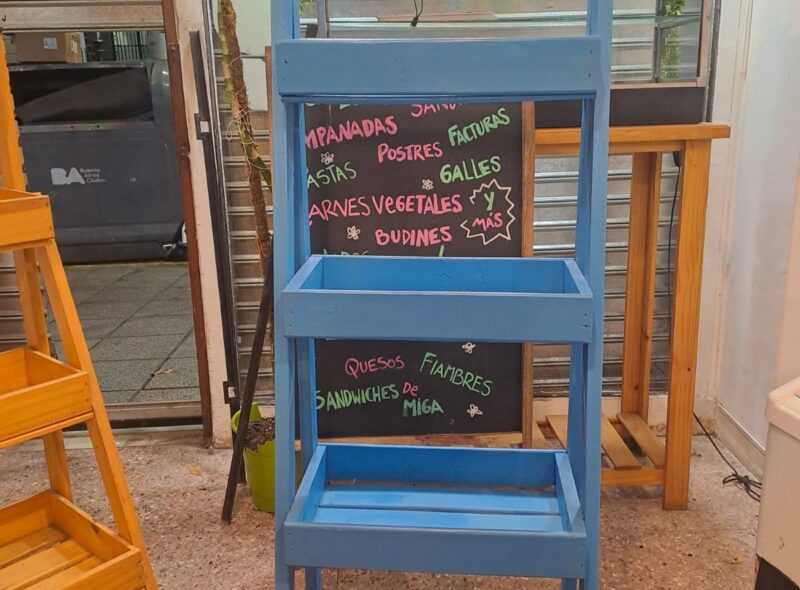 MPANADAS
POSTRES
FACTURAS
ASTAS
GALLES
ARNES VEGETALES
Y MÁS
BUDINES
QUESOS
FIAMBRES
SANDWICHES DE MIGA
BA
Buenos
Aires
Ciudad